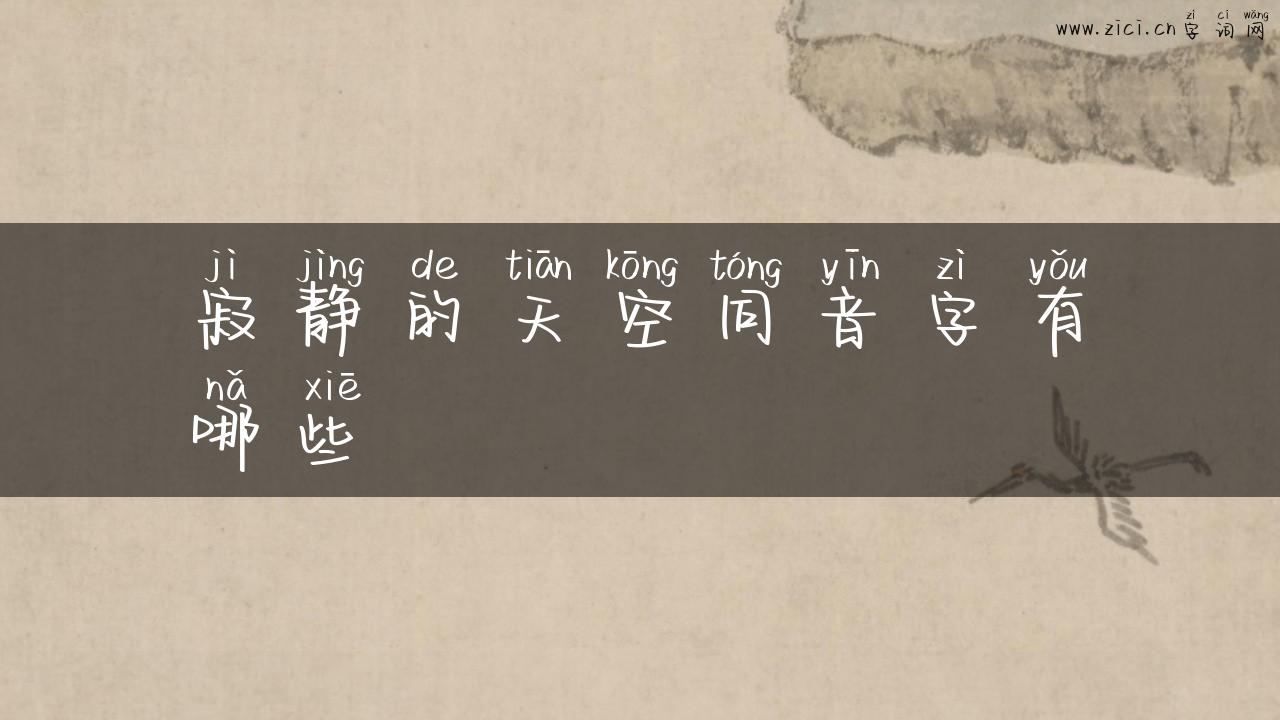 zì cí wǎng
www.zici.cn 字词网
jì jìng de tiān kōng tóng yīn zì yǒu
寂静的天空同音字有
nǎ xiē
哪些